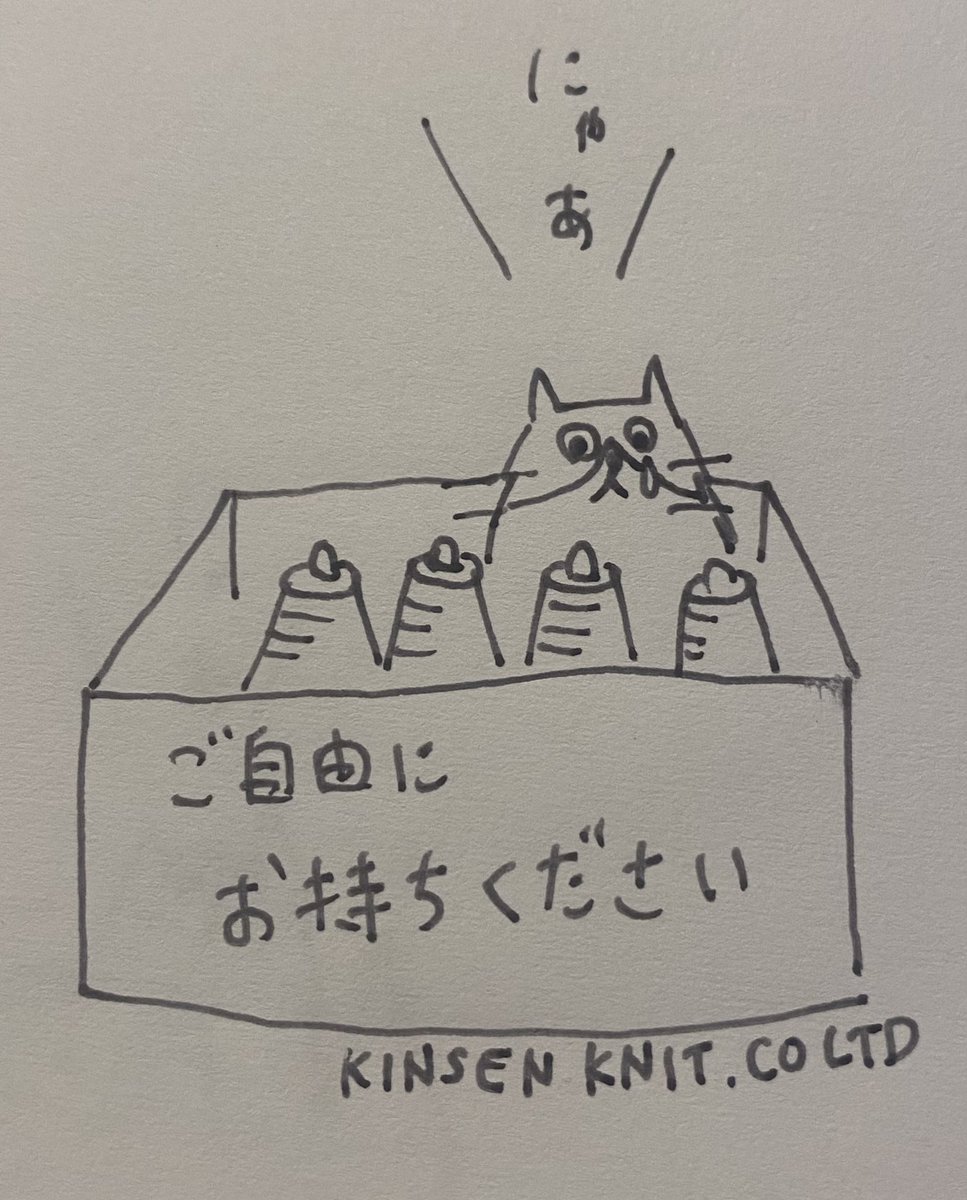 にゃあ
ご自由に
お持ちください
KINSEN KNIT.CO LTD